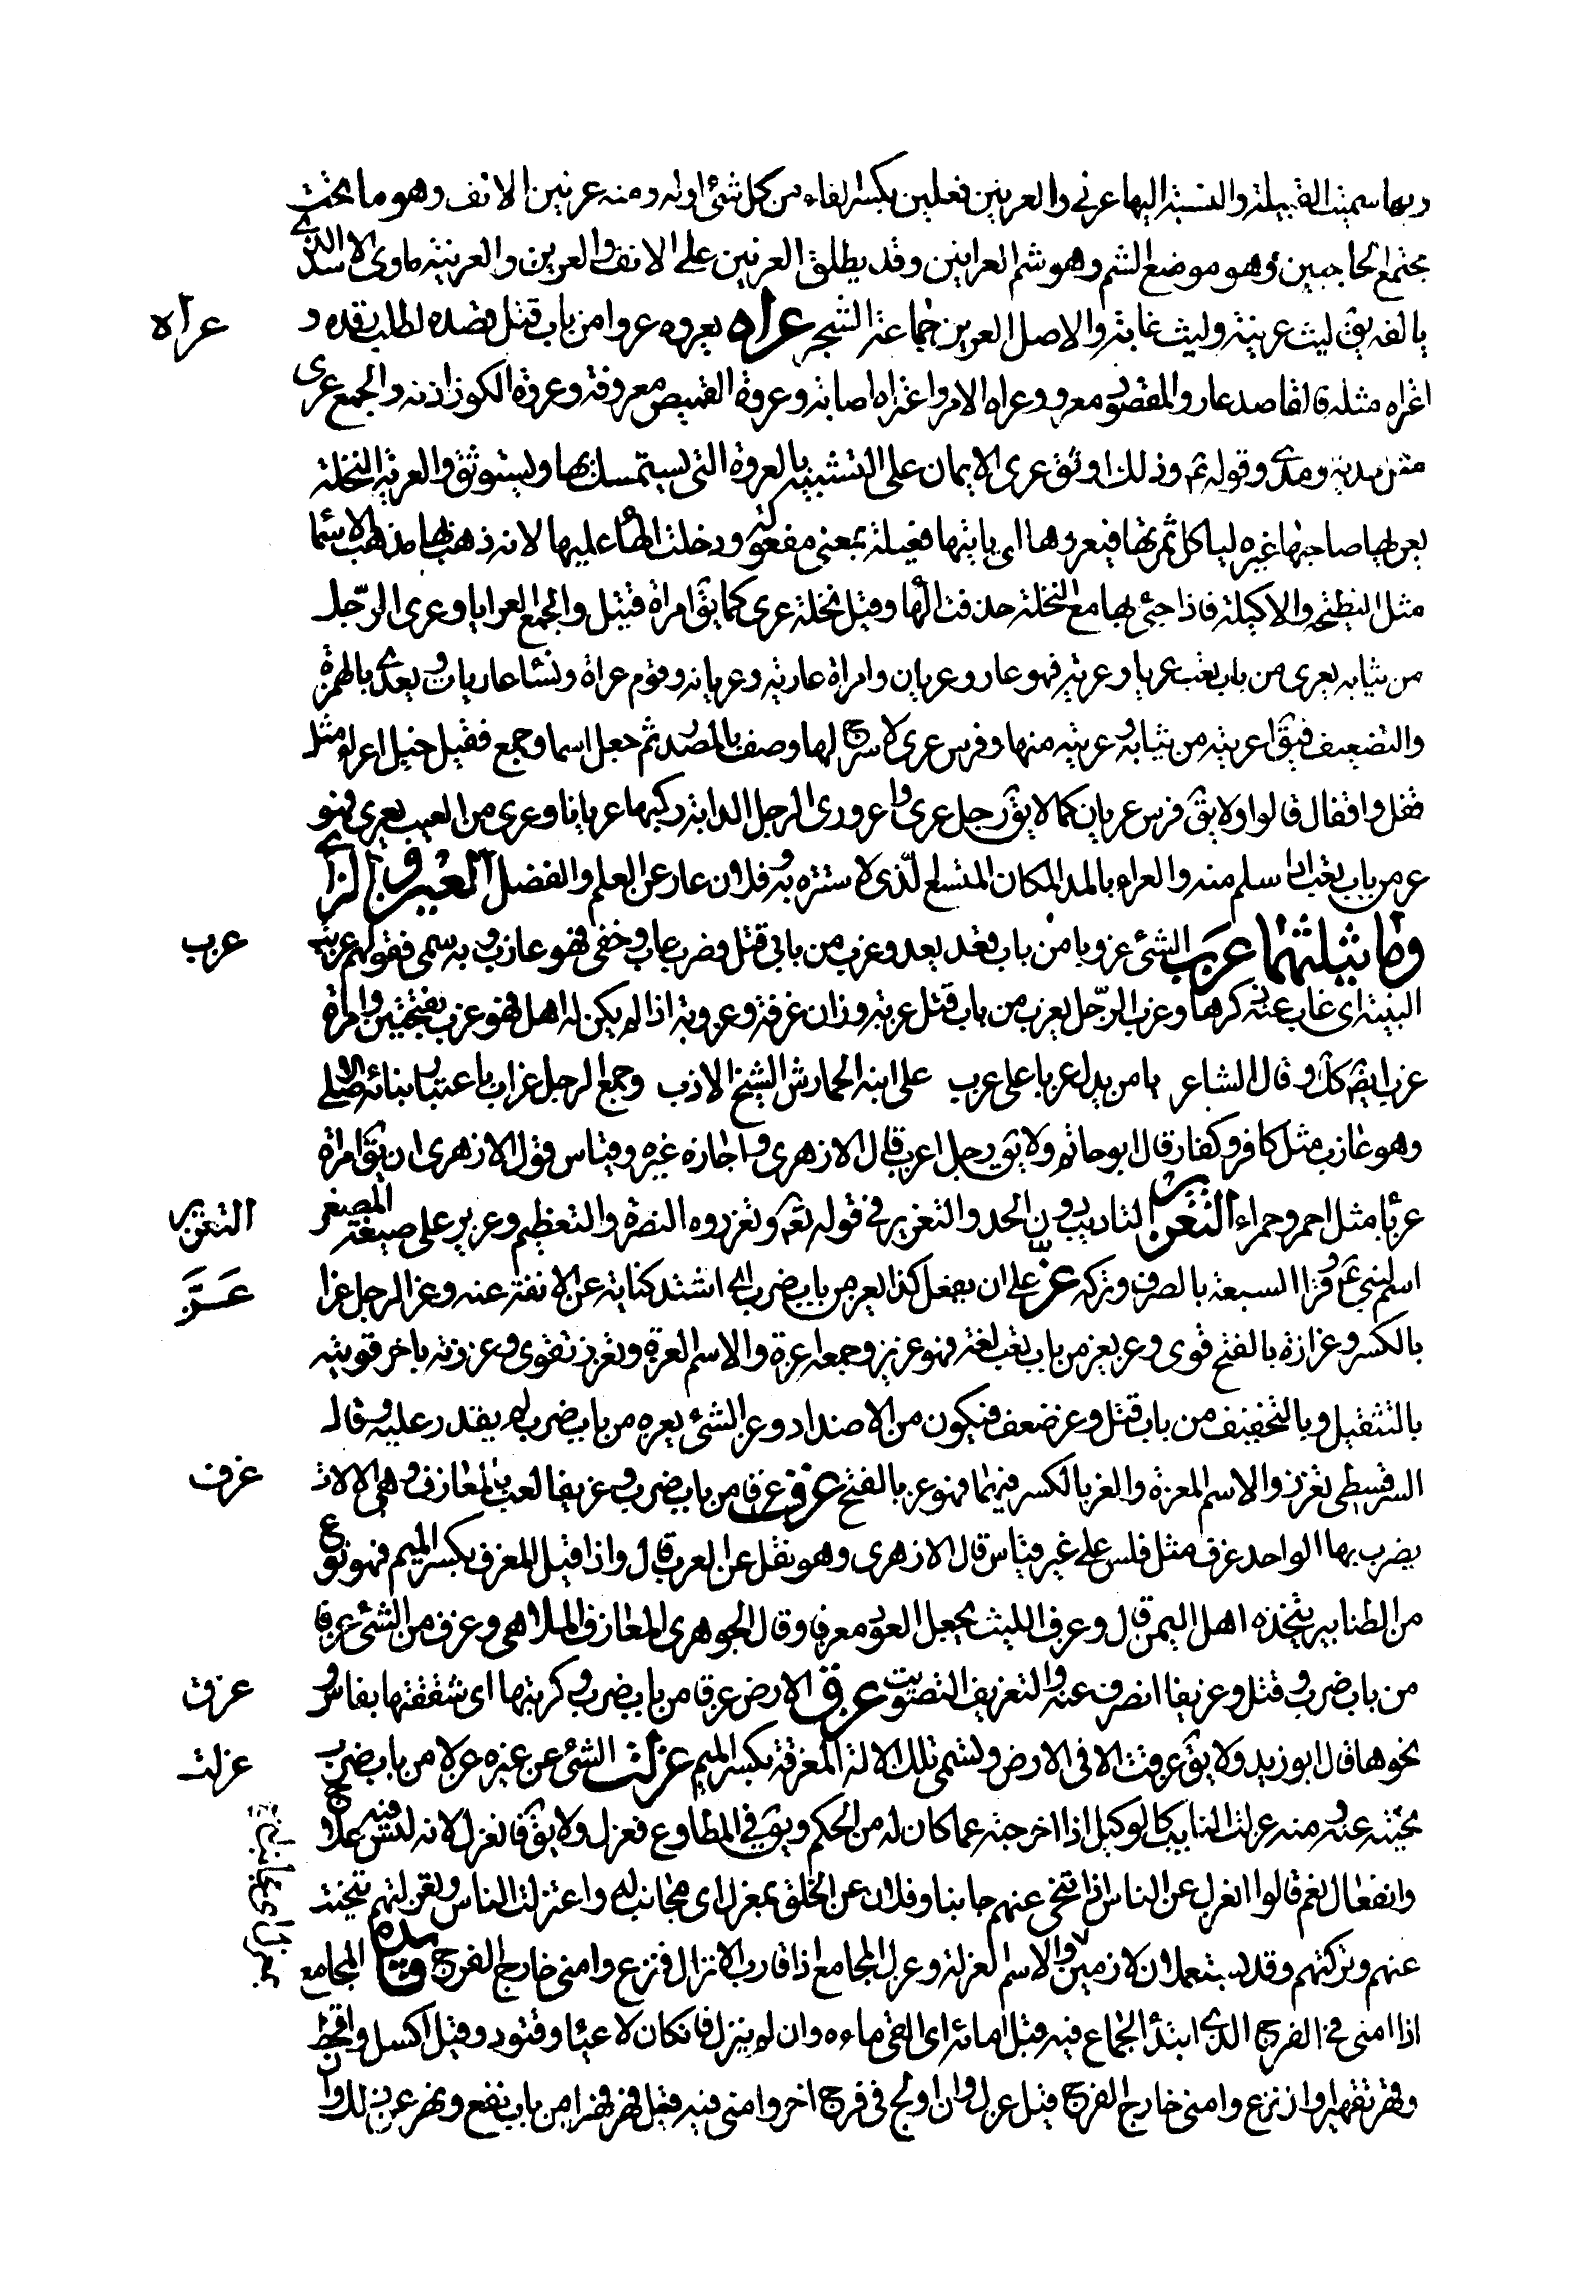 وبها سميت القبيلة والنسبة اليها عرنى والعرنين فعلين بكسر الفاء من كل شئ اوله ومنه عرنين الانف وهو ما تحت
مجتمع الحاجبين وهو موضع الشم وهو شم العرانين وقد يطلق العرنين على الانف والعرين والعرينة ماوى الاسد الذى
يالفه يق ليث عرينة وليث غابة والاصل العرين جماعة الشجر عراه يعروه عروا من باب قتل قصده لطلب رفده و
اعتراه مثله فالقاصد عار والمقصود معرو وعراه الامر واعتراه اصابه وعروة القميص معروفة وعروة الكوز اذنه والجمع عرى
مثل مدية ومدى وقوله ثم وذلك اوثق عرى الايمان على التشبيه بالعروة التى يستمسك بها ويستوثق والعرية النخلة
يعريها صاحبها غيره لياكل ثمرتها فيعروها اى ياتيها فعيلة بمعنى مفعولة ودخلت الهاء عليها لانه ذهب بها مذهب الاسما
مثل النطيحة والاكيلة فاذا جئ بها مع النخلة حذفت الهاء وقيل نخلة عرى كما يق امراة قتيل والجمع العرايا وعرى الرجل
من ثيابه يعرى من باب تعب عريا وعرية فهو عار وعريان وامراة عارية وعريانة وقوم عراة ونسا عاريات ويعدى بالهمزة
والتضعيف فيق اعريته من ثيابه وعريته منها وفرس عرى لا سرج لها وصف بالمصدر ثم جعل اسما وجمع فقيل خيل اعراء مثل
قفل واقفال قالوا ولا يق فرس عريان كما لا يق رجل عرى واعرورى الرجل الدابة ركبها عريانا وعرى من العيب يعرى فهو
عر من باب تعب اذا سلم منه والعراء بالمد المكان المتسع الذى لا سترة به وفلان عار عن العلم والفضل العين والزاى
وما يثلثهما عزب الشئ عزوبا من باب قعد بعد وعزب من بابى قتل وضرب غاب وخفى فهو عازب وبه سمى فقولهم عزبت
النية اى غاب عنه ذكرها وعزب الرجل يعزب من باب قتل عزبة وزان غرفة وعزوبة اذا لم يكن له اهل فهو عزب بفتحتين وامراة
عزب ايضا كك وقال الشاعر يا من يدل عزبا على عزب على ابنة الحمارس الشيخ الازب وجمع الرجل عزاب باعتبار بنائه الاصلى
وهو عازب مثل كافر وكفار قال ابو حاتم ولا يق رجل اعزب قال الازهرى واجازه غيره وقياس قول الازهرى ان يق امراة
عزبا مثل احمر وحمراء التعزير التاديب دون الحد والتعزير فى قوله تعم وتعزروه النصرة والتعظيم وعزير على صيغة المصغر
اسم نبى ع وقرا السبعة بالصرف وتركه عز على ان يفعل كذا يعز من باب ضرب اى اشتد كناية عن الانفة عنه وعز الرجل عزا
بالكسر وعزازة بالفتح قوى وعز يعز من باب تعب لغة فهو عزيز وجمعه اعزة والاسم العزة وتعزز تقوى وعززته باخر قويته
بالتثقيل وبالتخفيف من باب قتل وعز ضعف فيكون من الاضداد وعز الشئ يعز من باب ضرب لم يقدر عليه وقال
السرقسطى تعزز والاسم المعزة والعز بالكسر فيهما فهو عز بالفتح عزف عزفا من باب ضرب وعزيفا لعب بالمعازف وهى الالات
يضرب بها الواحد عزف مثل فلس على غير قياس قال الازهرى وهو نقل عن العرب قال واذا قيل المعزف بكسر الميم فهو نوع
من الطنابير يتخذه اهل اليمن قال وعزف الليث يجعل العود معزفا وقال الجوهرى المعازف الملاهى وعزف من الشئ عزفا
من باب ضرب وقتل وعزيفا انصرف عنه والتعزيف التصويت عزق الارض عزقا من باب ضرب وكربتها اى شققتها بفاس و
نحوها قال ابو زيد ولا يق عزقت الا فى الارض وتسمى تلك الالة المعزقة بكسر الميم عزلت الشئ عن غيره عزلا من باب ضرب
نحيته عنه ومنه عزلت النايب كالوكيل اذا اخرجته عما كان له من الحكم ويق فى المطاوع فعزل ولا يق فانعزل لانه ليس فيه علاج
وانفعال نعم قالوا انعزل عن الناس اذا تنحى عنهم جانبا وفلان عن الحق بمعزل اى مجانب له واعتزلت الناس وتعزلتهم تنحيت
عنهم وتركتهم وقد يستعملان لازمين والاسم العزلة وعزل المجامع اذا قارب الانزال فنزع وامنى خارج الفرج فايدة المجامع
اذا امنى فى الفرج الذى ابتدئ الجماع فيه قيل اماء اى القى ماءه وان لم ينزل فان كان لاعياء وفتور وقيل اكسل واقحط
وفهر تفهيرا وان نزع وامنى خارج الفرج قيل عزل وان اولج فى فرج اخر وامنى فيه قيل فهر فهرا من باب نفع ونهى عن ذلك وان
عراه
عزب
التعزير
عَزَّ
عزف
عزق
عزلت